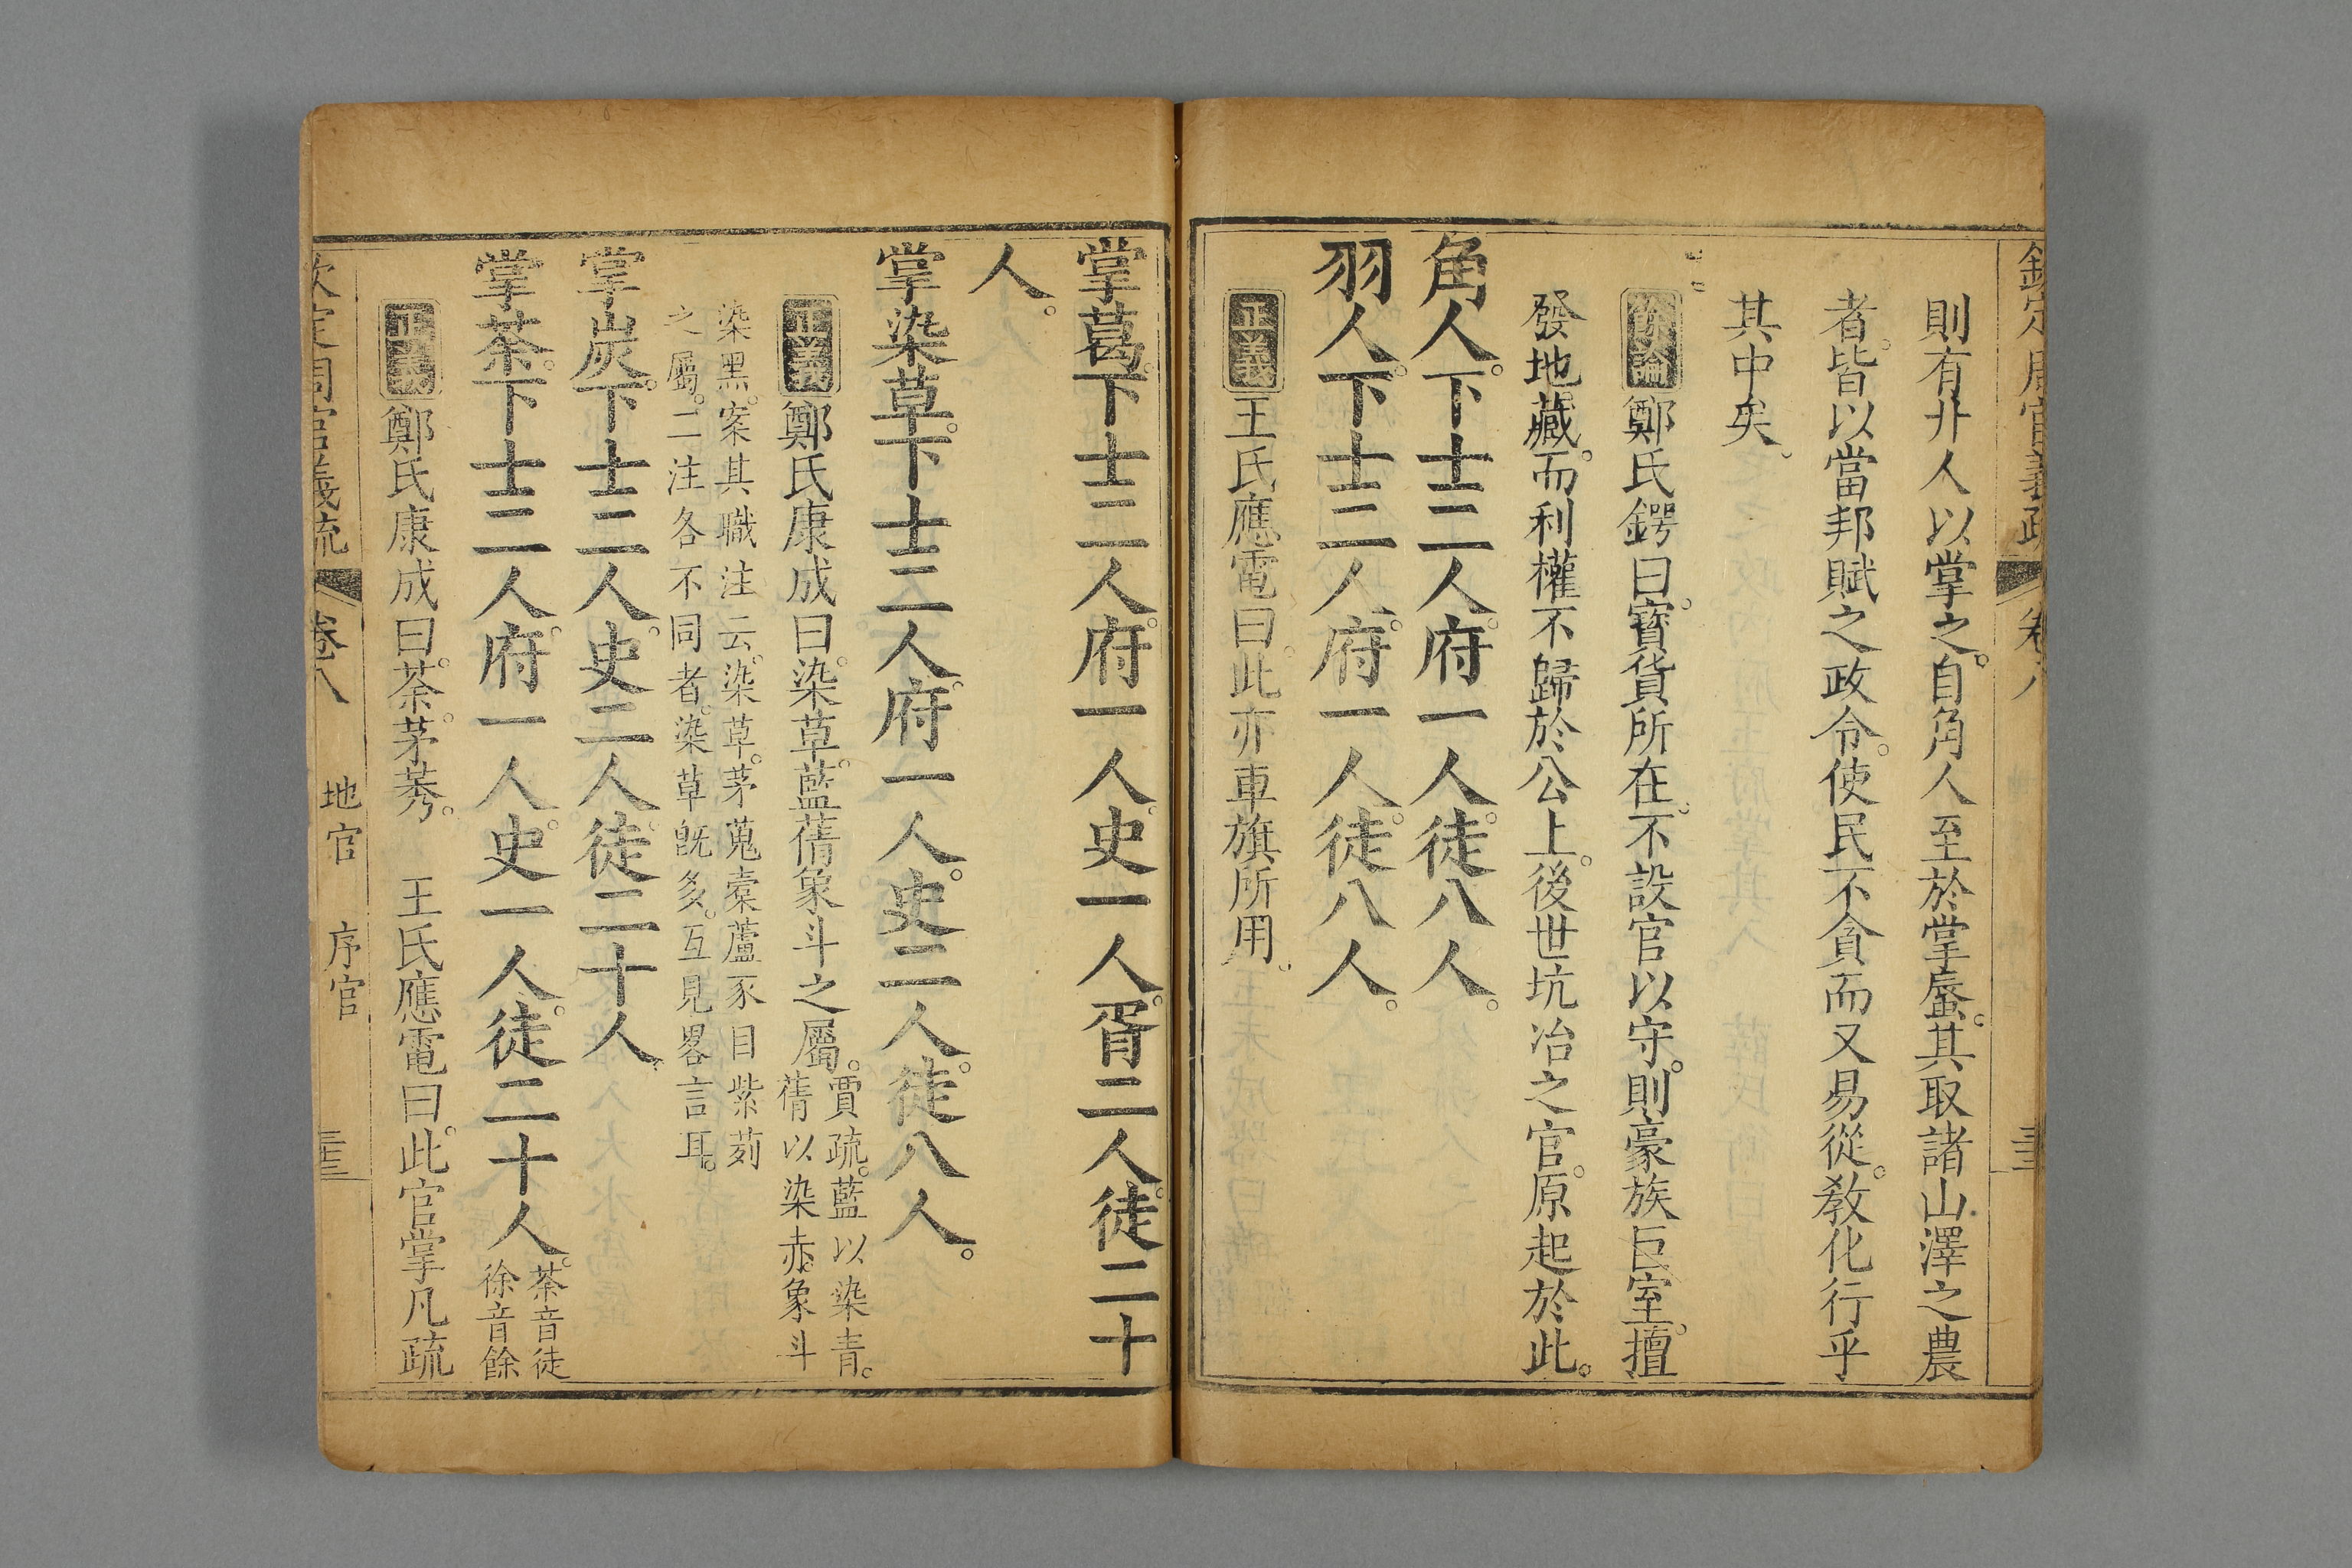 欽定周官義疏 卷八
則有丱人以掌之。自角人至於掌蜃。其取諸山澤之農
者。皆以當邦賦之政令。使民不貪而又易從。敎化行乎
其中矣。
餘論 鄭氏鍔曰。寶貨所在。不設官以守。則豪族巨室。擅
發地藏。而利權不歸於公上。後世坑冶之官。原起於此。
角人。下士二人。府一人。徒八人。
羽人。下士二人。府一人。徒八人。
正義 王氏應電曰。此亦車旗所用。
掌葛。下士二人。府一人。史一人。胥二人。徒二十
人。
掌染草。下士二人。府一人。史二人。徒八人。
正義 鄭氏康成曰。染草。藍蒨象斗之屬。賈疏。藍以染青。
蒨以染赤。象斗
染黑。案其職注云。染草。茅蒐橐蘆豕首紫茢
之屬。二注各不同者。染草旣多。互見畧言耳。
掌炭。下士二人。史二人。徒二十人。
掌荼。下士二人。府一人。史一人。徒二十人。荼音徒
徐音餘
正義 鄭氏康成曰。荼。茅莠。 王氏應電曰。此官掌凡疏
欽定周官義疏 卷八 地官 序官